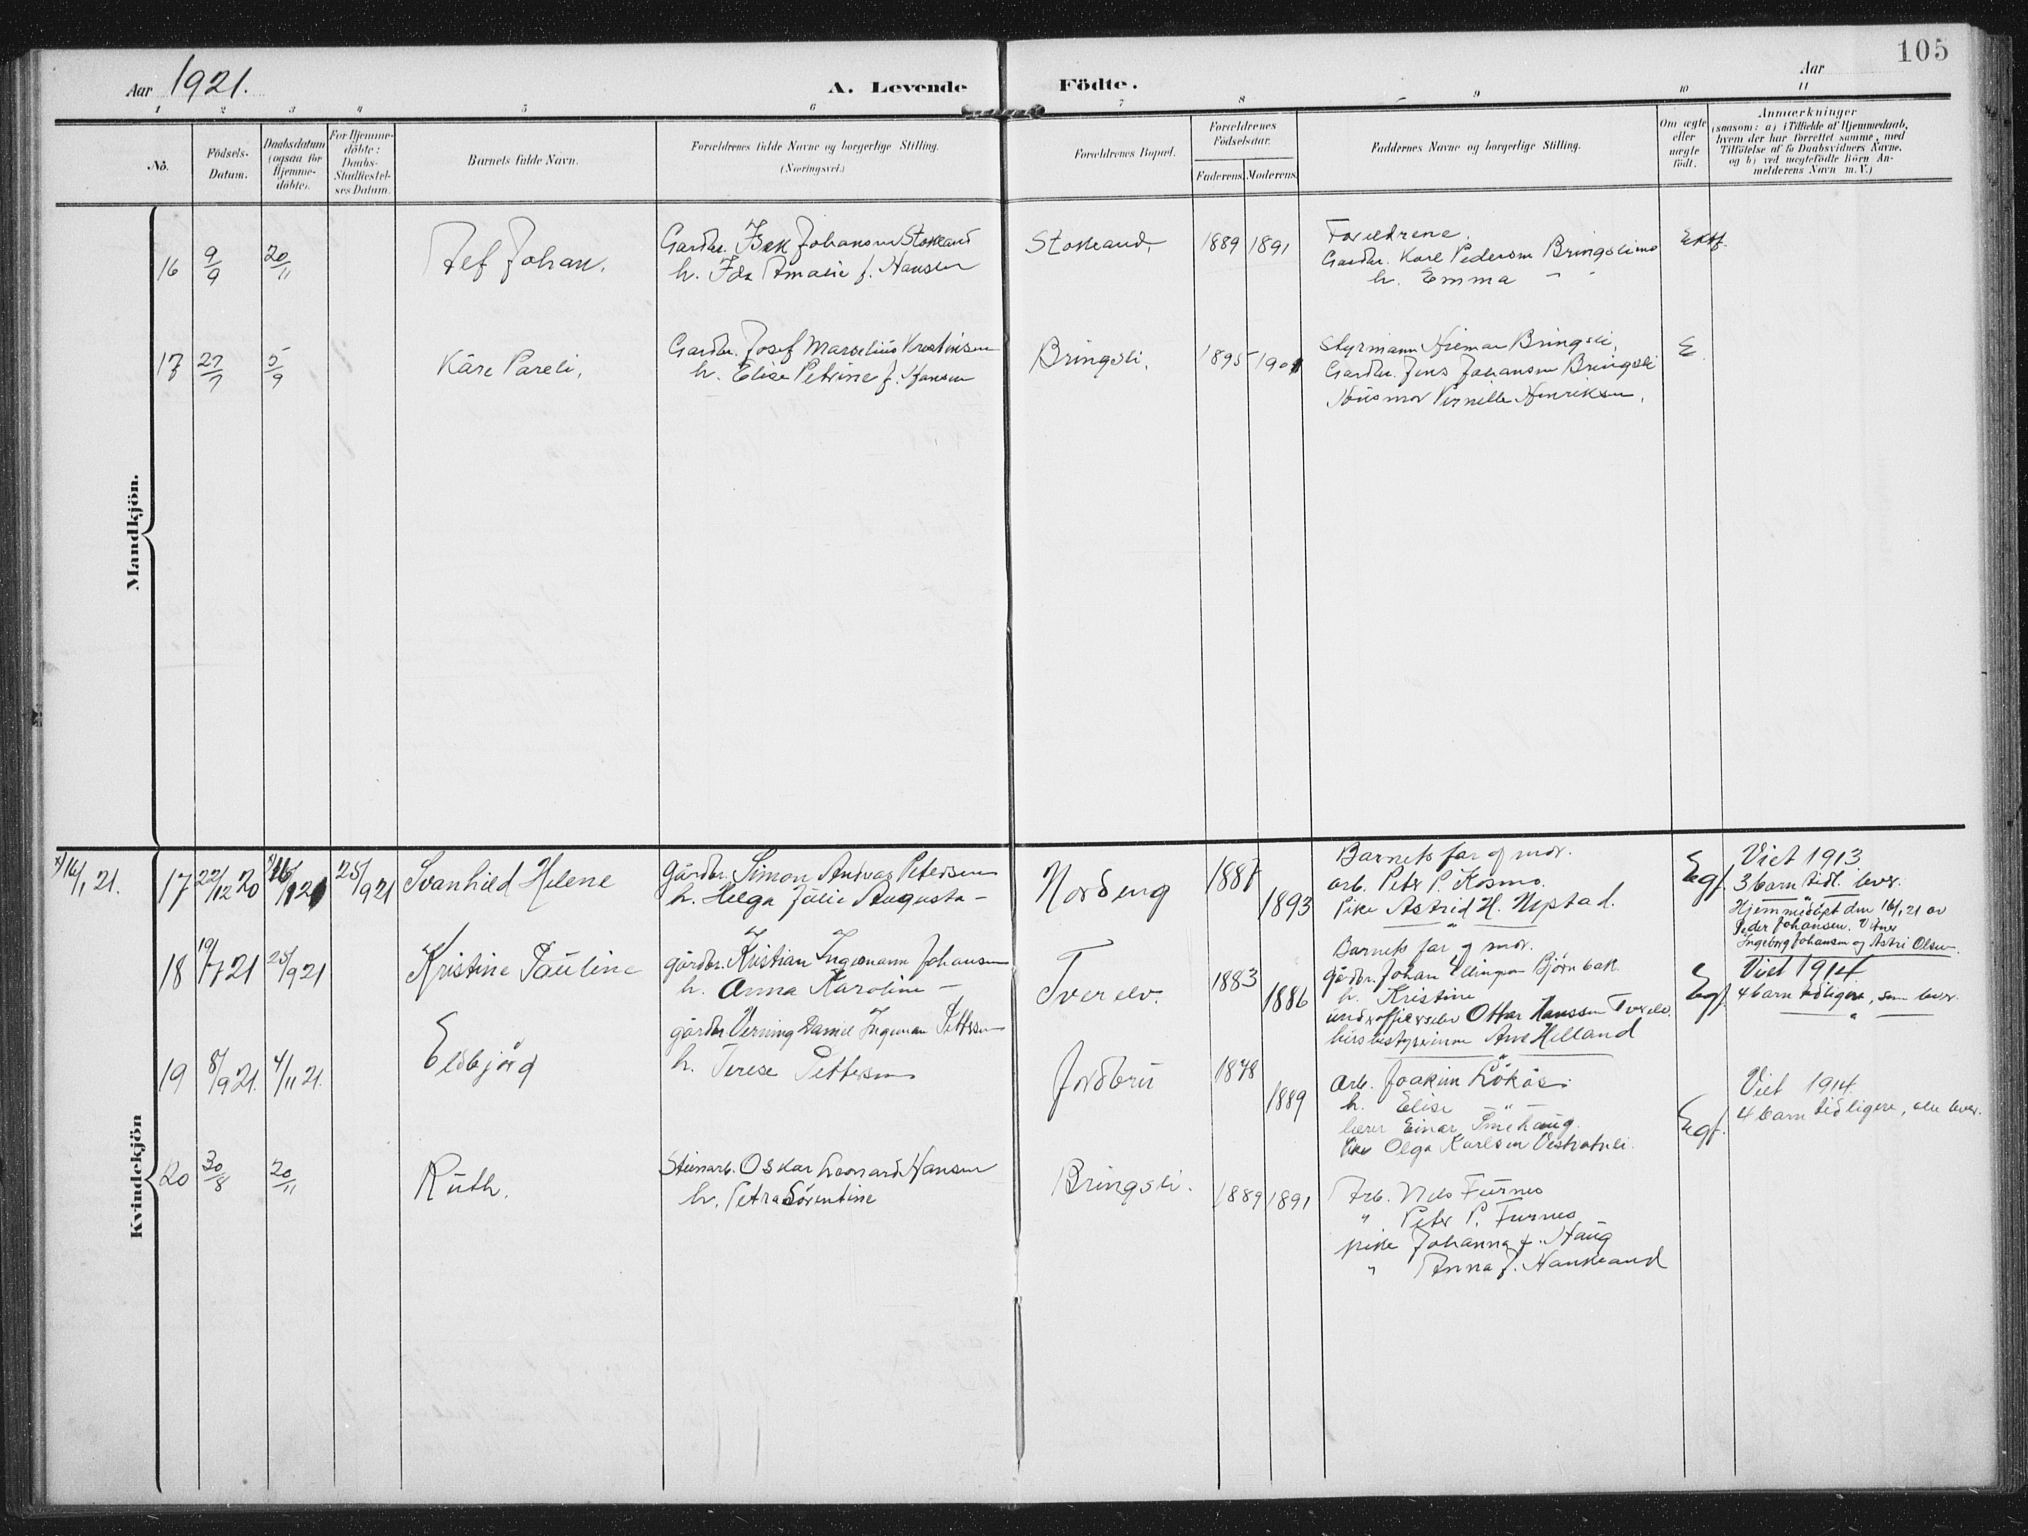 105
Aar 1921. A. Levende Födte. Aar
1 2 3 4 5 6 7 8 9 10 11
No.
Födsels-
Datum.
Daabsdatum
(ogsaa for
Hjemme-
döbte).
For Hjemme-
döbte:
Daabs-
Stadfæstel-
ses Datum.
Barnets fulde Navn.
Forældrenes fulde Navne og borgerlige Stilling.
(Næringsvei.)
Forældrenes Bopæl.
Forældrenes
Födselsaar.
Faderens. Moderens.
Faddernes Navne og borgerlige Stilling.
Om ægte
eller
uægte
födt.
Anmærkninger
(saasom: a) i Tilfælde af Hjemmedaab,
hvem der har forrettet samme, med
Tilföielse af to Daabsvidners Navne,
og b) ved uegtefödte Börn An-
melderens Navn m. V.)
Mandkjön.
16 9/9 20/11
Alf Johan.
Gardbr. Isak Johansen Stokland
h. Ida Amalie f. Hansen
Stokland,
1889 1891
Foreldrene.
Gardbr. Karl Pedersen Bringslimo
h. Emma " "
Ektf.
17 27/7 5/9
Kåre Pareli,
Gardbr. Josef Marselius Kristinsen
h. Elise Petrine f. Hansen
Bringsli.
1895 1901
Styrmann Hilmar Bringsli,
Gardbr. Jens Johansen Bringsli
Husmor Pernille Henriksen,
E.
Kvindekjön
x) 16/1 21.
17 22/12 20 x) 16/1 21 25/9 21
Svanhild Helene
gårdbr. Simon Andreas Petersen
h. Helga Julie Augusta —
Nordeng
1887 1893
Barnets far og mor.
arb. Peter P. Kosmo.
Pike Astrid H. Nystad.
Egf.
Viet 1913
3 barn tidl. lever.
Hjemmedöpt den 16/1 21 av
Peder Johansen. Vitner
Ingeborg Johansen og Astri Olsen.
18 19/7 21 25/9 21
Kristine Pauline
gårdbr. Kristian Ingemann Johansen
h. Anna Karoline —
Tverelv.
1883 1886
Barnets far og mor.
gårdbr. Johan Ellingsen Bjørnbak
h. Kristine
underofficerselev Ottar Hanssen Tverelv.
husbestyrerinne Ane Helland
Egf.
Viet 1914.
4 barn tidligere, som lever.
19 8/9 21. 4/11 21.
Eldbjørg
gårdbr. Verning Daniel Ingeman Pettersen
h. Terese Pettersen
Jordbru
1878 1889
Arb. Joakim Løkås.
h. Elise "
lærer Einar Smehaug.
Pike Olga Karlsen Vestvatnli.
Egf.
Viet 1914.
4 barn tidligere, alle lever.
20 30/8 20/11
Ruth.
Stenarb. Oskar Leonard Hansen
h. Petra Sörentine
Bringsli.
1889 1891
Arb. Nils Furnes
" Peter P. Furnes
pike Johanna J. Haug
" Anna J. Hankland